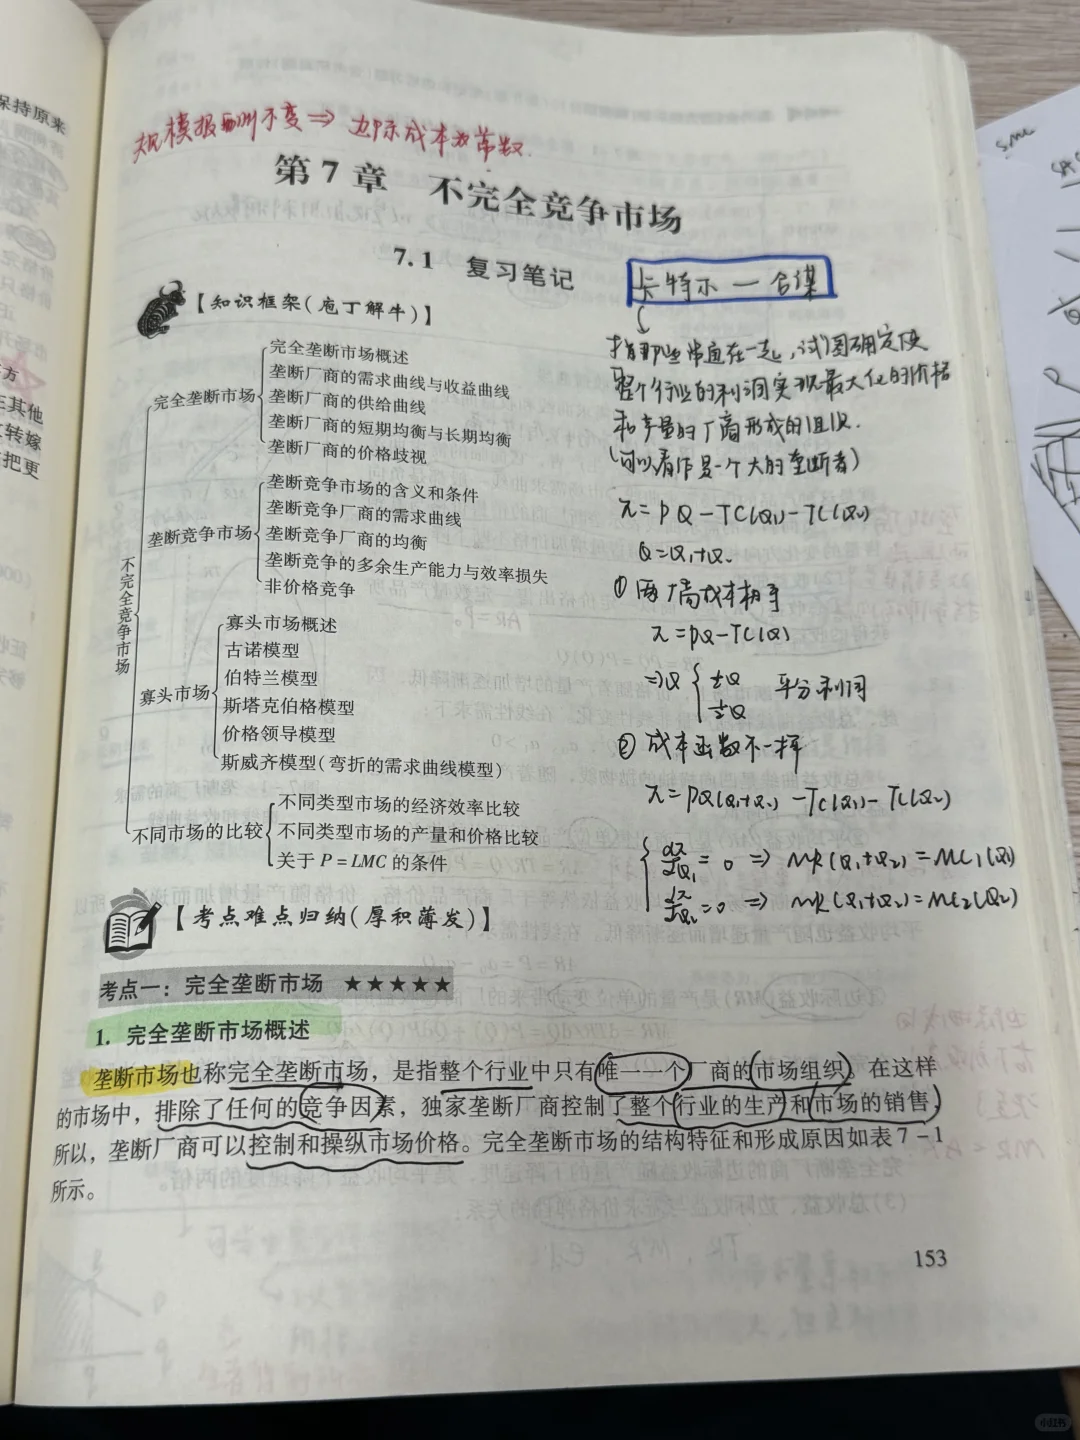 保持原来
方
在其他
转嫁
把更
规模报酬不变⇒边际成本为常数.
第7章 不完全竞争市场
7.1 复习笔记
卡特尔—合谋
【知识框架(庖丁解牛)】
指那些串通在一起,试图确定使
整个行业的利润实现最大化的价格
和产量的厂商形成的组织.
(可以看作是一个大的垄断者)
π=PQ-TC(Q₁)-TC(Q₂)
Q=Q₁+Q₂
① 两厂商成本相等
π=PQ-TC(Q)
⇒Q { ½Q 平分利润
½Q
② 成本函数不一样
π=PQ(Q₁+Q₂)-TC(Q₁)-TC(Q₂)
dπ/dQ₁=0 ⇒ MR(Q₁+Q₂)=MC₁(Q₁)
dπ/dQ₂=0 ⇒ MR(Q₁+Q₂)=MC₂(Q₂)
不完全竞争市场
完全垄断市场
完全垄断市场概述
垄断厂商的需求曲线与收益曲线
垄断厂商的供给曲线
垄断厂商的短期均衡与长期均衡
垄断厂商的价格歧视
垄断竞争市场
垄断竞争市场的含义和条件
垄断竞争厂商的需求曲线
垄断竞争厂商的均衡
垄断竞争的多余生产能力与效率损失
非价格竞争
寡头市场
寡头市场概述
古诺模型
伯特兰模型
斯塔克伯格模型
价格领导模型
斯威齐模型(弯折的需求曲线模型)
不同市场的比较
不同类型市场的经济效率比较
不同类型市场的产量和价格比较
关于P=LMC的条件
【考点难点归纳(厚积薄发)】
考点一：完全垄断市场 ★★★★★
1. 完全垄断市场概述
垄断市场也称完全垄断市场，是指整个行业中只有唯一一个厂商的市场组织。在这样
的市场中，排除了任何的竞争因素，独家垄断厂商控制了整个行业的生产和市场的销售，
所以，垄断厂商可以控制和操纵市场价格。完全垄断市场的结构特征和形成原因如表7-1
所示。
153
小红书